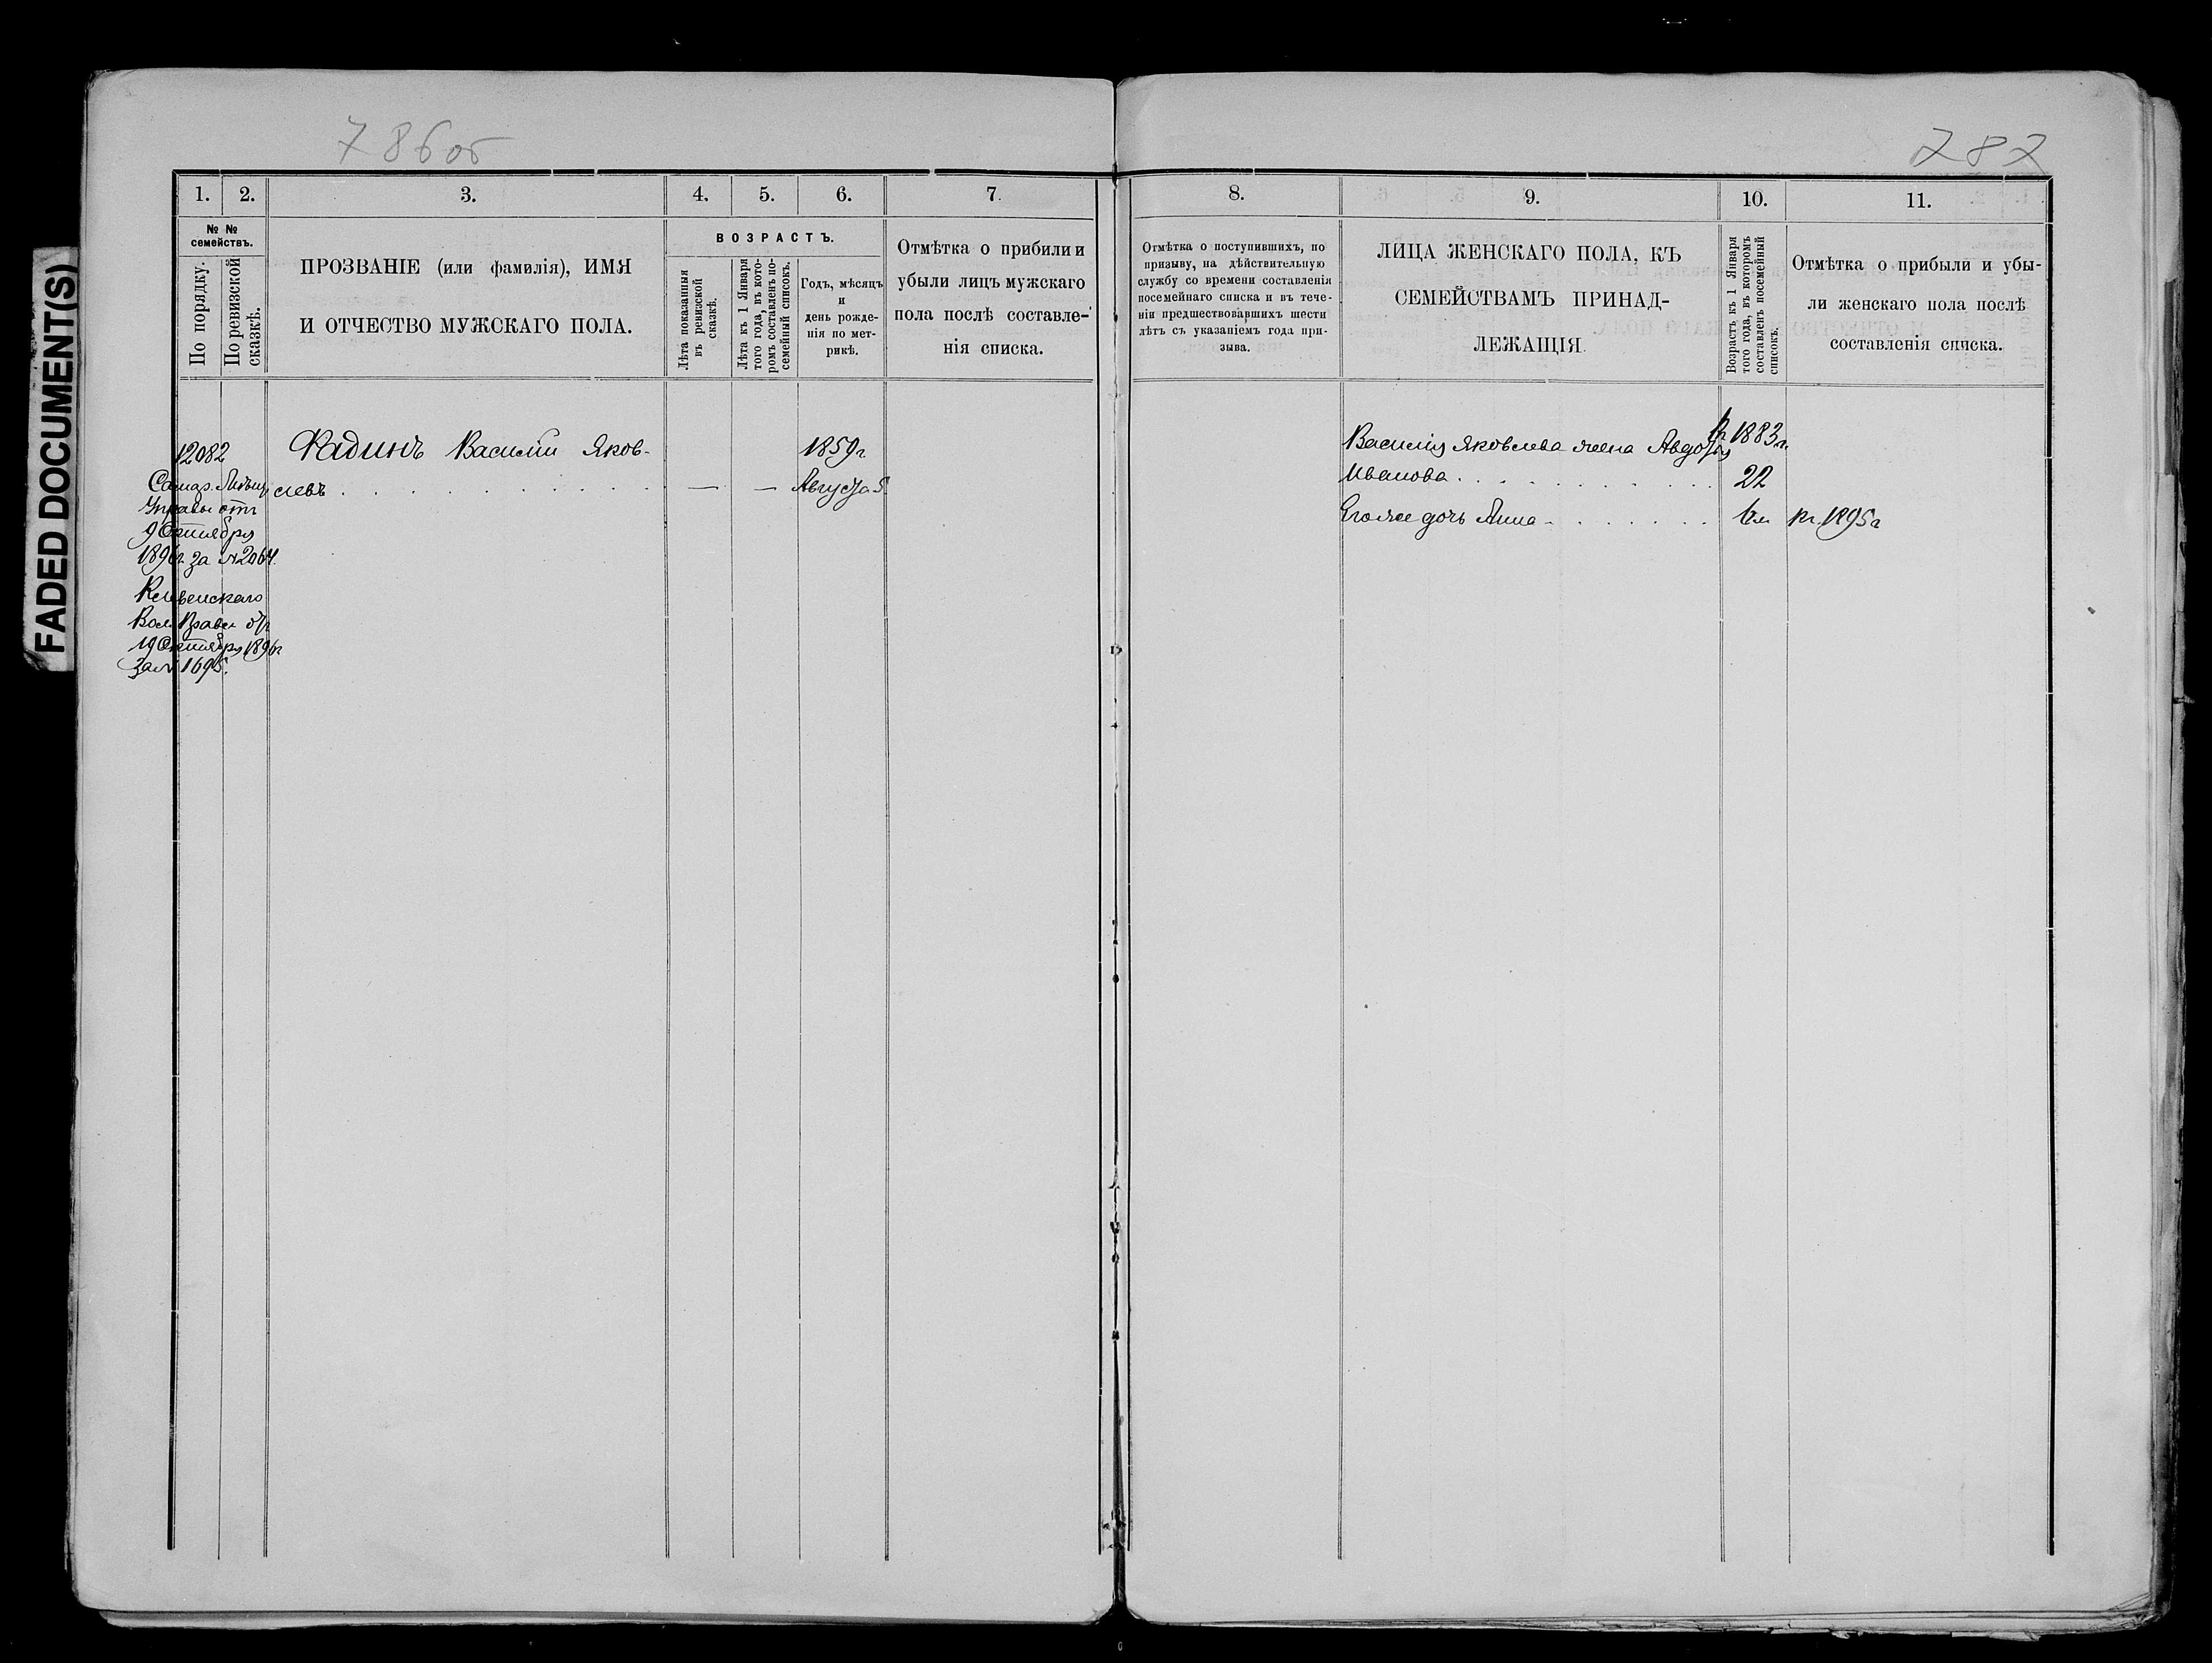 FADED DOCUMENT(S)
786об
787
1.
2.
3.
4.
5.
6.
7.
№ №
семействъ.
По порядку.
По ревизской
сказкѣ.
ПРОЗВАНІЕ (или фамилія), ИМЯ
И ОТЧЕСТВО МУЖСКАГО ПОЛА.
ВОЗРАСТЪ.
Лѣта показанныя
въ ревизской
сказкѣ.
Лѣта къ 1 Января
того года, въ кото-
ромъ составленъ по-
семейный списокъ.
Годъ, мѣсяцъ
и
день рожде-
нія по мет-
рикѣ.
Отмѣтка о прибили и
убыли лицъ мужскаго
пола послѣ составле-
нія списка.
12082
Фадинъ Василій Яков-
1859г
левъ
— — Августа 5
Самар. Мѣщ.
Управы отъ
9 Октября
1896г за №2064.
Вол. Правл. отъ
19 Октября 1896г
за № 1695.
8.
9.
10.
11.
Отмѣтка о поступившихъ, по
призыву, на дѣйствительную
службу со времени составленія
посемейнаго списка и въ тече-
ніи предшествовавшихъ шести
лѣтъ съ указаніемъ года при-
зыва.
ЛИЦА ЖЕНСКАГО ПОЛА, КЪ
СЕМЕЙСТВАМЪ ПРИНАД-
ЛЕЖАЩІЯ.
Возрастъ къ 1 Января
того года, въ которомъ
составленъ посемейный
списокъ.
Отмѣтка о прибыли и убы-
ли женскаго пола послѣ
составленія списка.
Василія Яковлева жена Авдотья
1883г.
Иванова
22
Его же дочь Анна
1895г